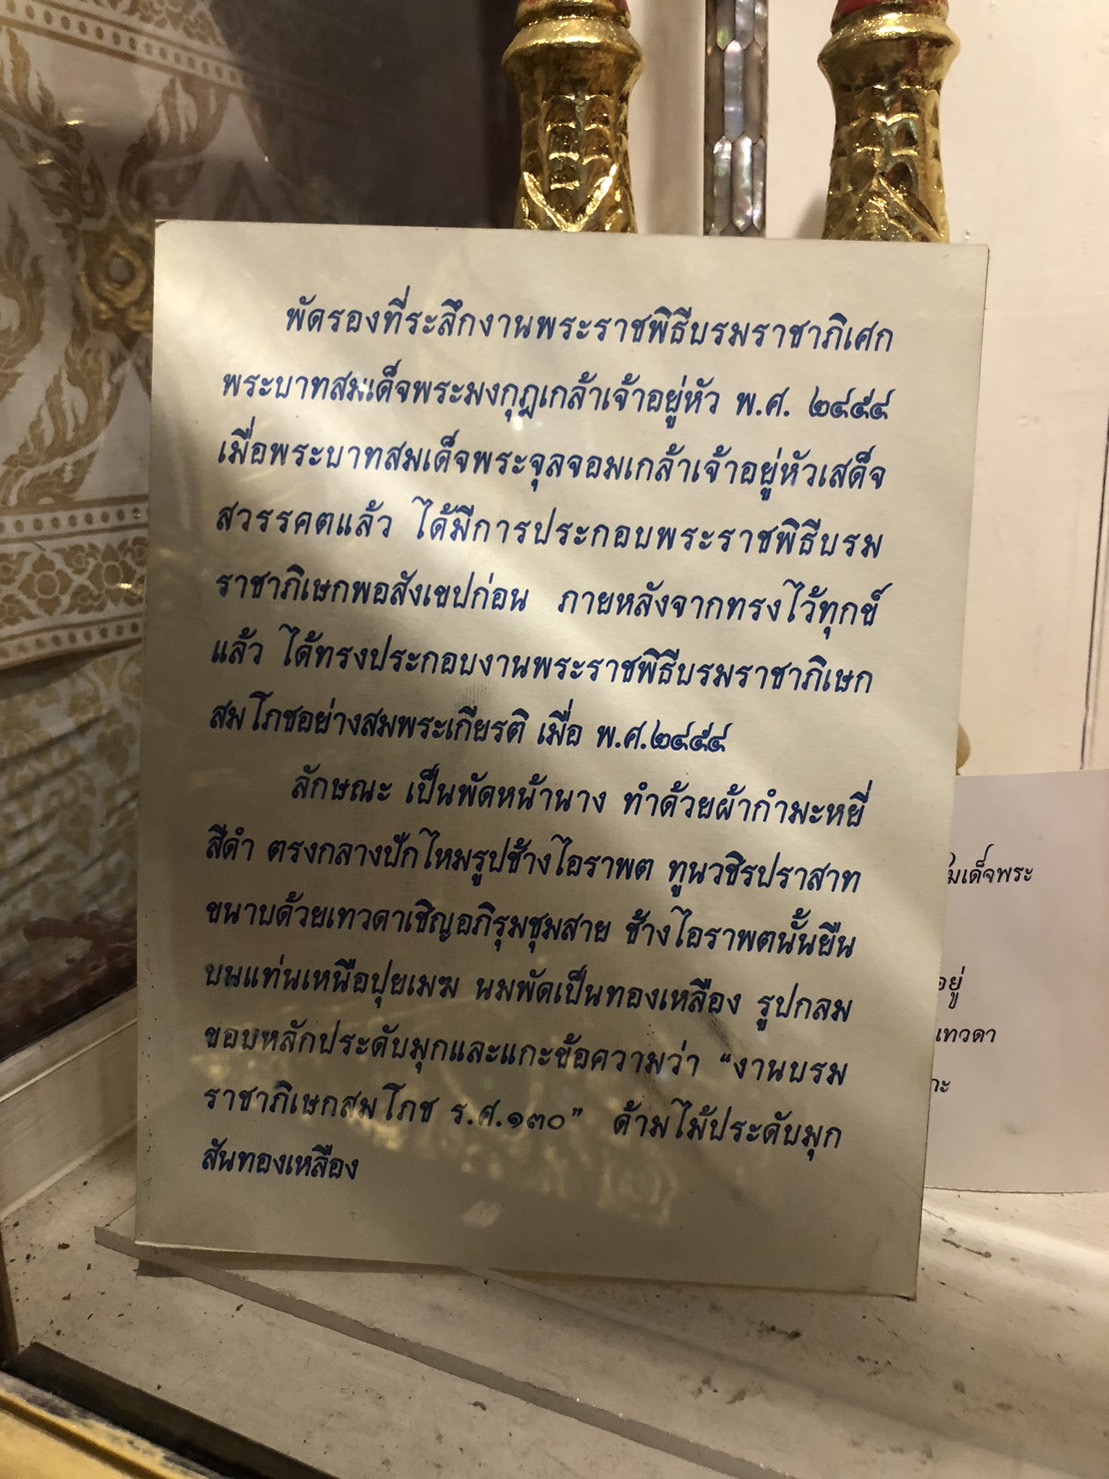 พัดรองที่ระลึกงานพระราชพิธีบรมราชาภิเศก
พระบาทสมเด็จพระมงกุฎเกล้าเจ้าอยู่หัว พ.ศ. ๒๔๕๔
เมื่อพระบาทสมเด็จพระจุลจอมเกล้าเจ้าอยู่หัวเสด็จ
สวรรคตแล้ว ได้มีการประกอบพระราชพิธีบรม
ราชาภิเษกพอสังเขปก่อน ภายหลังจากทรงไว้ทุกข์
แล้ว ได้ทรงประกอบงานพระราชพิธีบรมราชาภิเษก
สมโภชอย่างสมพระเกียรติ เมื่อ พ.ศ.๒๔๕๔
ลักษณะ เป็นพัดหน้านาง ทำด้วยผ้ากำมะหยี่
สีดำ ตรงกลางปักไหมรูปช้างไอราพต ทูนวชิรปราสาท
ขนาบด้วยเทวดาเชิญอภิรุมชุมสาย ช้างไอราพตนั้นยืน
บนแท่นเหนือปุยเมฆ นมพัดเป็นทองเหลือง รูปกลม
ขอบหลักประดับมุกและแกะข้อความว่า “งานบรม
ราชาภิเษกสมโภช ร.ศ.๑๓๐” ด้ามไม้ประดับมุก
สันทองเหลือง
มเด็จพระ
อยู่
เทวดา
กะ